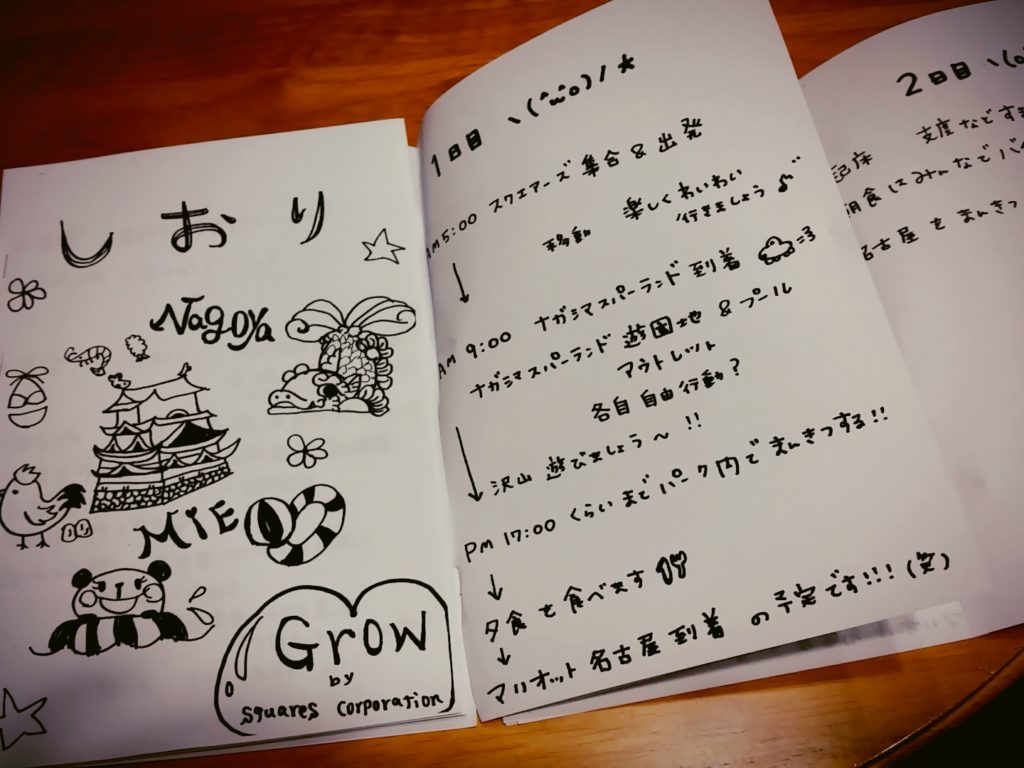 しおり
Nagoya
MIE
Grow
by
squares corporation
1日目 ヽ(^ω^o)/★
AM 5:00 スクエアーズ 集合 & 出発
移動 楽しくわいわい
行きましょう♪
↓
AM 9:00 ナガシマスパーランド 到着
ナガシマスパーランド 遊園地 & プール
アウトレット
各自 自由行動?
↓
沢山 遊びましょう〜 !!
PM 17:00 くらいまでパーク内でまんきつする!!
↓
夕食を食べます
↓
マリオット名古屋到着 の予定です!!! (笑)
2日目
起床 支度などす
朝食はみんなでバイ
名古屋をまんき